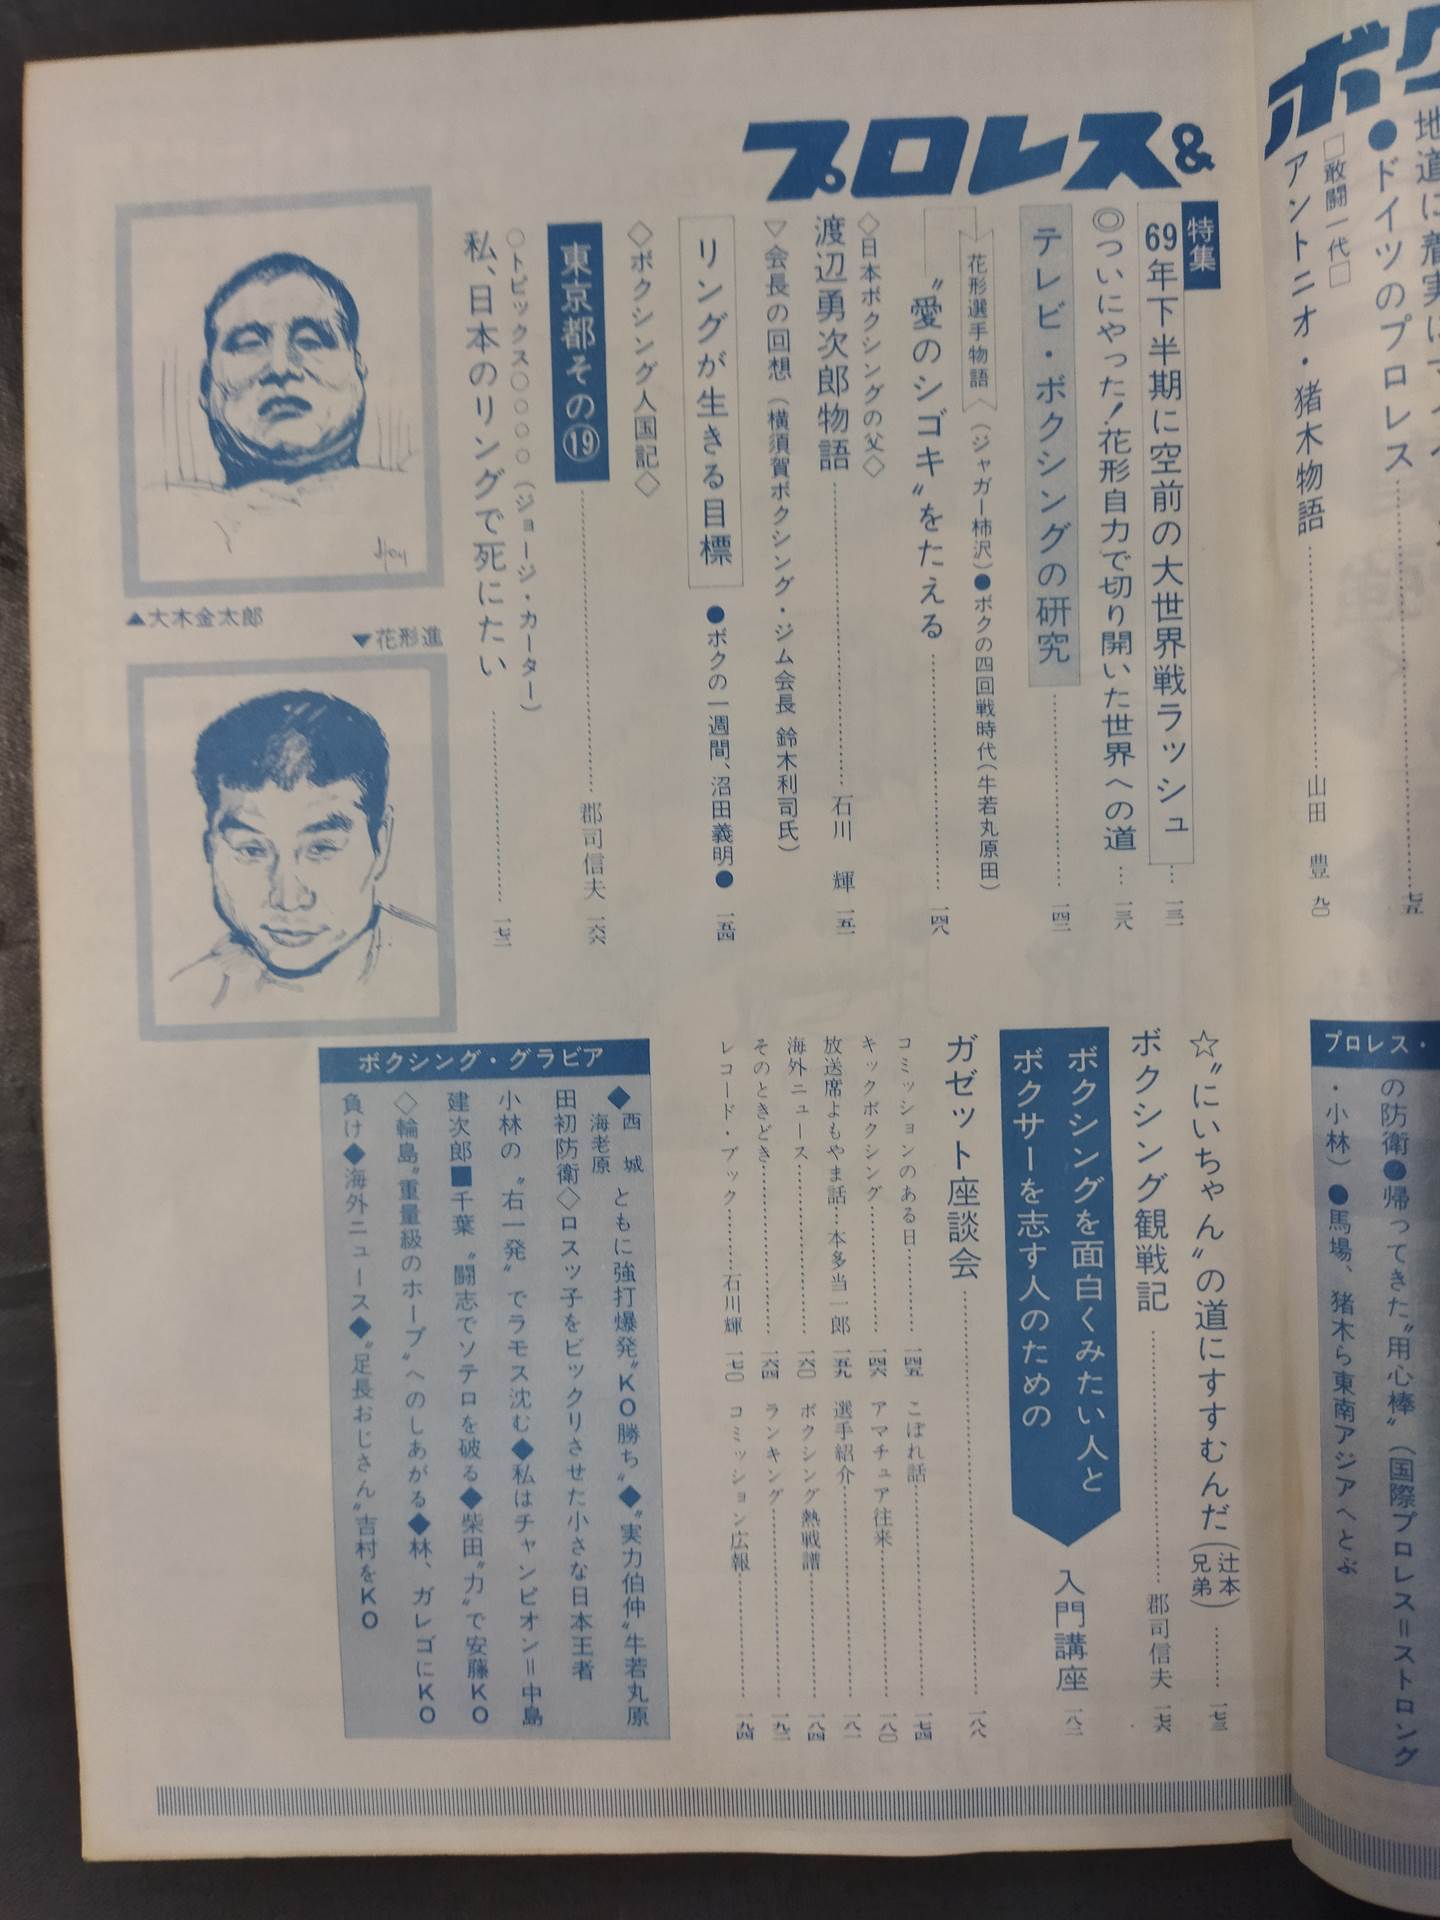 ボク
地道に着実に
●ドイツのプロレス
七五
□敢闘一代□
アントニオ・猪木物語
山田　豊　九〇
プロレス・
の防衛●帰ってきた〝用心棒〟(国際プロレス＝ストロング
・小林)●馬場、猪木ら東南アジアへとぶ
プロレス&
特集
69年下半期に空前の大世界戦ラッシュ…一三一
◎ついにやった！花形自力で切り開いた世界への道…一三八
テレビ・ボクシングの研究……一四二
花形選手物語(ジャガー柿沢)●ボクの四回戦時代(牛若丸原田)
〝愛のシゴキ〟をたえる……一四八
◇日本ボクシングの父◇
渡辺勇次郎物語……石川　輝　一五一
▽会長の回想(横須賀ボクシング・ジム会長 鈴木利司氏)
リングが生きる目標●ボクの一週間、沼田義明●　一五四
◇ボクシング人国記◇
東京都その⑲……郡司信夫　一六六
○トピックス○○○○(ジョージ・カーター)
私、日本のリングで死にたい……一七二
▲大木金太郎
▼花形進
☆〝にいちゃん〟の道にすすむんだ(辻本兄弟)……一七三
ボクシング観戦記……郡司信夫　一七六
ボクシングを面白くみたい人と
ボクサーを志す人のための
入門講座　一八二
ガゼット座談会……一八八
コミッションのある日……一四五
キックボクシング……一四六
放送席よもやま話…本多当一郎　一五九
海外ニュース……一六〇
そのときどき……一六四
レコード・ブック……石川輝　一七〇
こぼれ話……一七四
アマチュア往来……一八〇
選手紹介……一八一
ボクシング熱戦譜……一八四
ランキング……一九二
コミッション広報……一九四
ボクシング・グラビア
◆西城 海老原 ともに強打爆発〝KO勝ち〟◆〝実力伯仲〟牛若丸原
田初防衛◇ロスッ子をビックリさせた小さな日本王者
小林の〝右一発〟でラモス沈む◆私はチャンピオン＝中島
建次郎■千葉〝闘志でソテロを破る◆柴田〝力〟で安藤KO
◇輪島〝重量級のホープ〟へのしあがる◆林、ガレゴにKO
負け◆海外ニュース◆〝足長おじさん〟吉村をKO